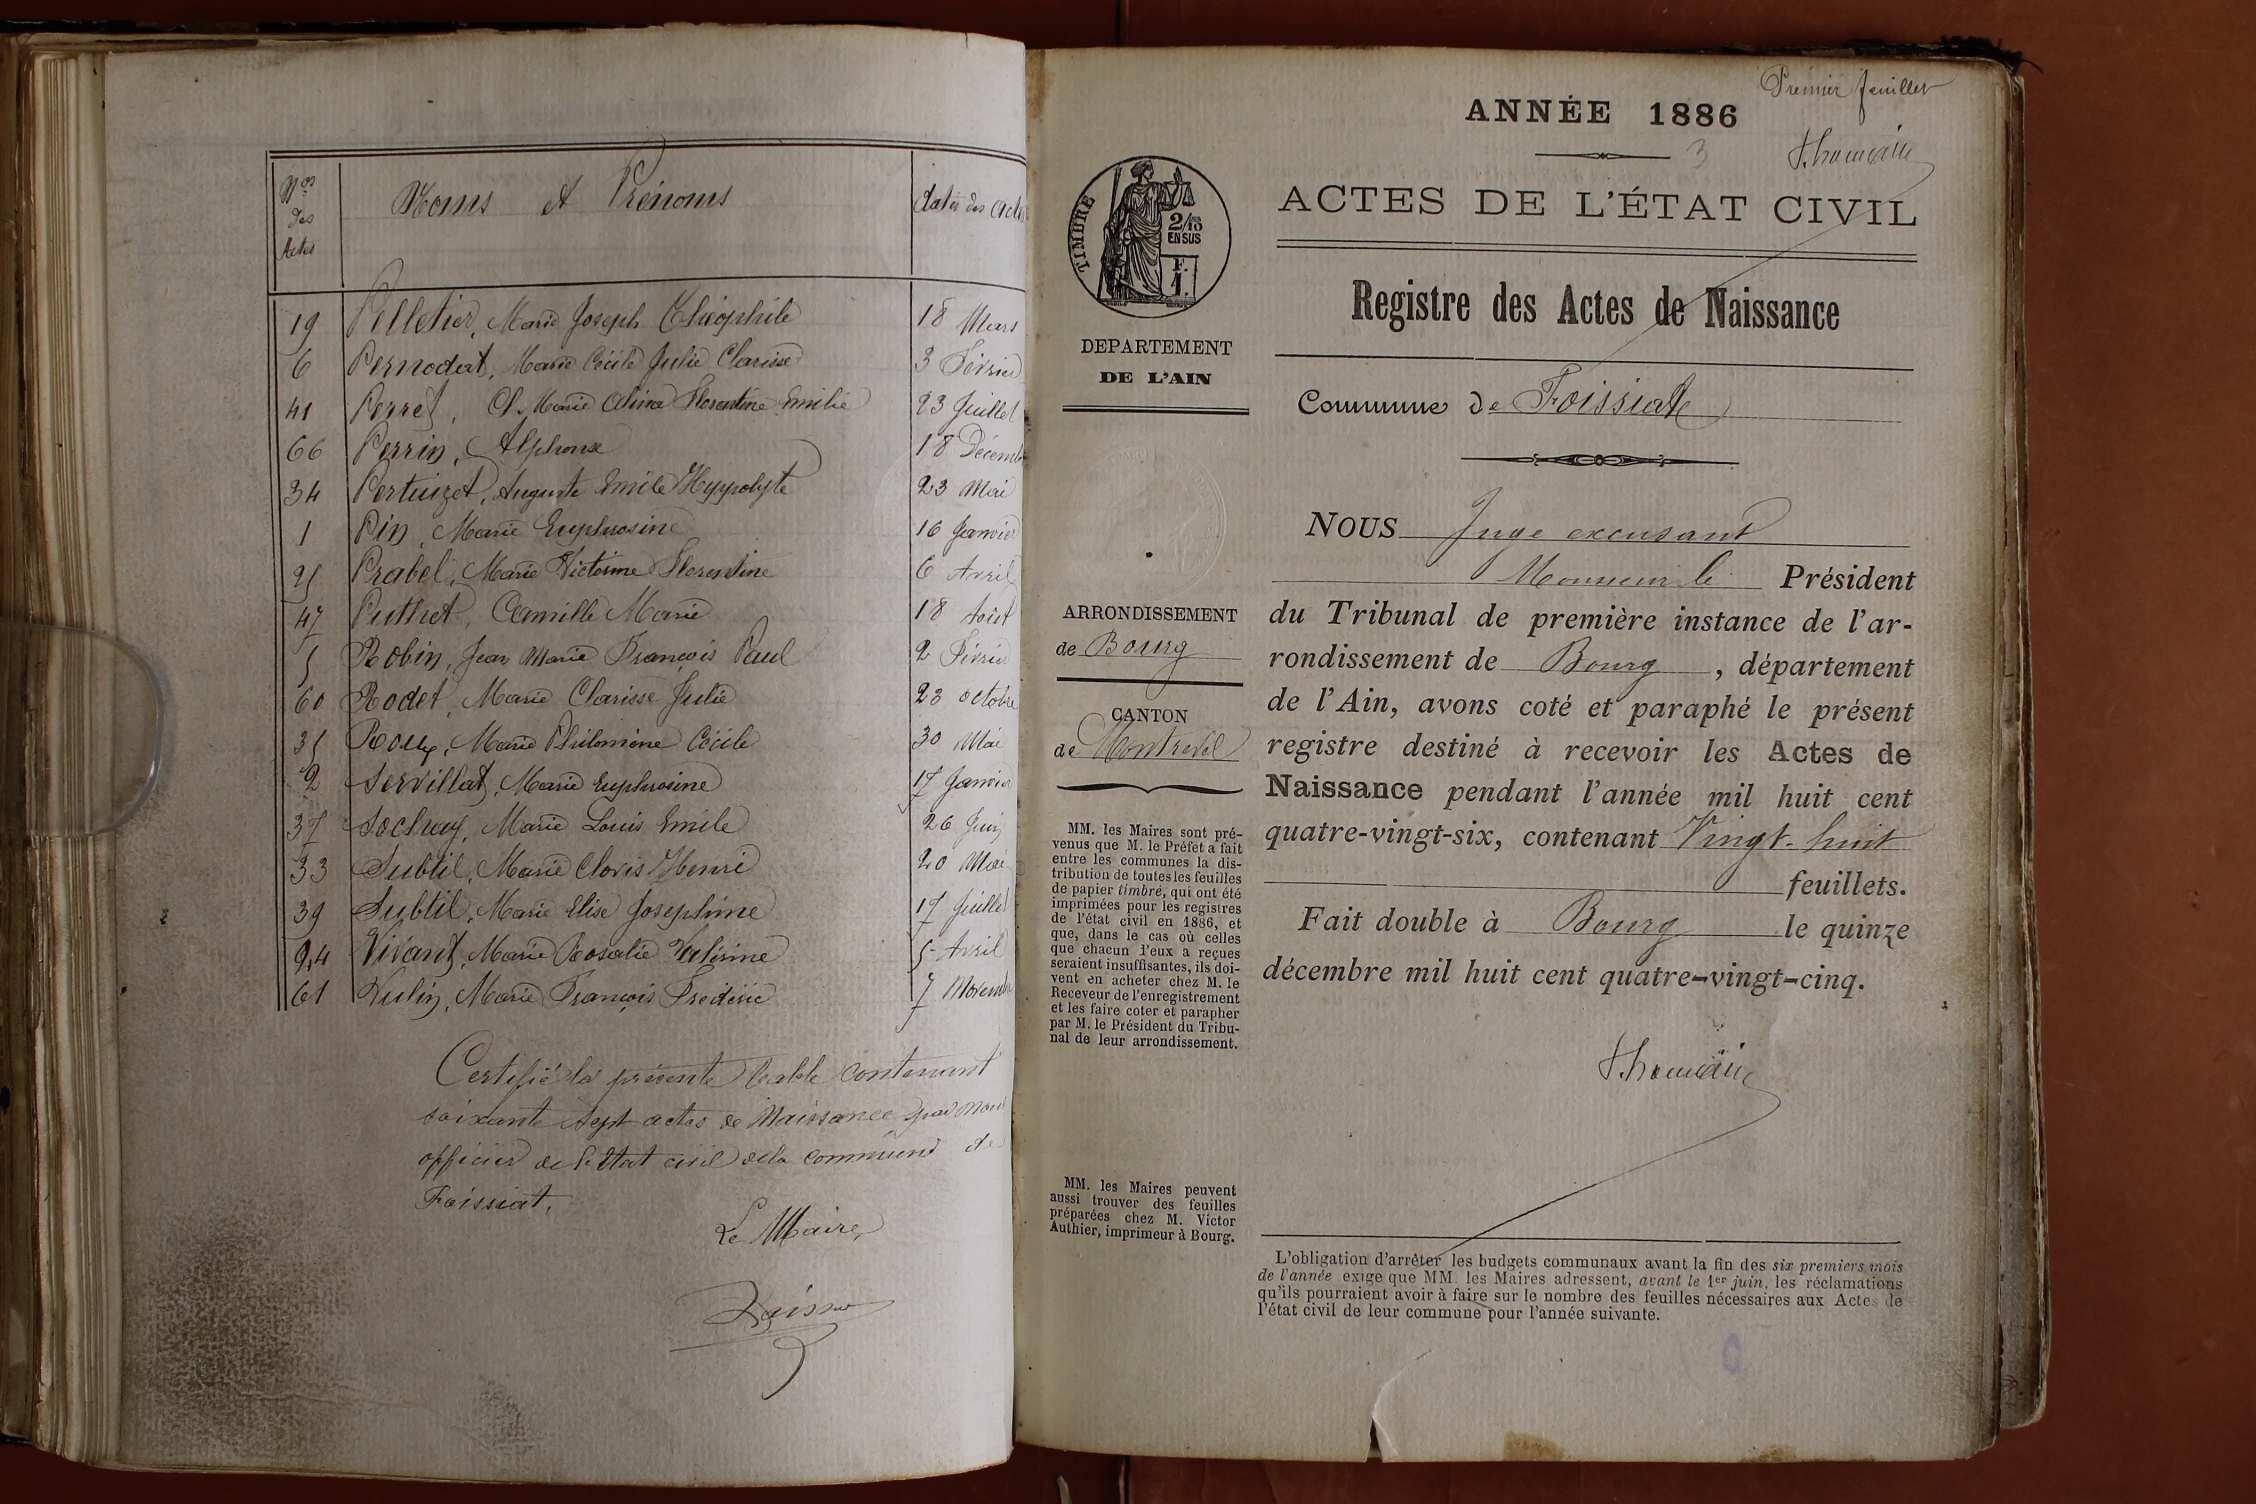 Nos des Actes Noms et Prénoms Dates des Actes
19 Pelletier, Marie Joseph Théophile 18 Mars
6 Pernodat, Marie Cécile Julie Clarisse 3 Février
41 Perret, Cl. Marie Céline Florentine Emilie 23 Juillet
66 Perrin, Alphonse 18 Décemb
34 Pertuizet, Auguste Emile Hyppolyte 23 Mai
1 Pin, Marie Euphrosine 16 Janvier
25 Prabel, Marie Victorine Florentine 6 Avril
47 Puthet, Camille Marie 18 Août
5 Robin, Jean Marie François Paul 2 Février
60 Rodet, Marie Clarisse Julie 23 octobre
35 Roux, Marie Philomène Cécile 30 Mai
2 Servillat, Marie Euphrosine 17 Janvier
37 Sochay, Marie Louis Emile 26 Juin
33 Subtil, Marie Clovis Henri 20 Mai
39 Subtil, Marie Elise Joséphine 17 Juillet
24 Vivant, Marie Rosalie 5 Avril
61 Marie François Frédéric 7 Novemb
Certifié la présente table contenant
soixante sept actes de Naissance par nous
officier de l'état civil de la commune de
Foissiat.
Le Maire,
Premier feuillet
ANNÉE 1886
3
ACTES DE L'ÉTAT CIVIL
TIMBRE
2/10
EN SUS
F.
1.
Registre des Actes de Naissance
DEPARTEMENT
DE L'AIN
Commune de Foissiat
NOUS Juge excusant
Monsieur le Président
du Tribunal de première instance de l'ar-
rondissement de Bourg, département
de l'Ain, avons coté et paraphé le présent
registre destiné à recevoir les Actes de
Naissance pendant l'année mil huit cent
quatre-vingt-six, contenant Vingt-huit
feuillets.
Fait double à Bourg le quinze
décembre mil huit cent quatre-vingt-cinq.
ARRONDISSEMENT
de Bourg
CANTON
de Montrevel
MM. les Maires sont pré-
venus que M. le Préfet a fait
entre les communes la dis-
tribution de toutes les feuilles
de papier timbré, qui ont été
imprimées pour les registres
de l'état civil en 1886, et
que, dans le cas où celles
que chacun d'eux a reçues
seraient insuffisantes, ils doi-
vent en acheter chez M. le
Receveur de l'enregistrement
et les faire coter et parapher
par M. le Président du Tribu-
nal de leur arrondissement.
MM. les Maires peuvent
aussi trouver des feuilles
préparées chez M. Victor
Authier, imprimeur à Bourg.
L'obligation d'arrêter les budgets communaux avant la fin des six premiers mois
de l'année exige que MM. les Maires adressent, avant le 1er juin, les réclamations
qu'ils pourraient avoir à faire sur le nombre des feuilles nécessaires aux Actes de
l'état civil de leur commune pour l'année suivante.